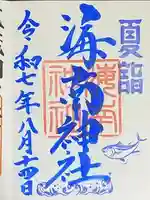 夏詣
海南神社
令和七年八月十四日